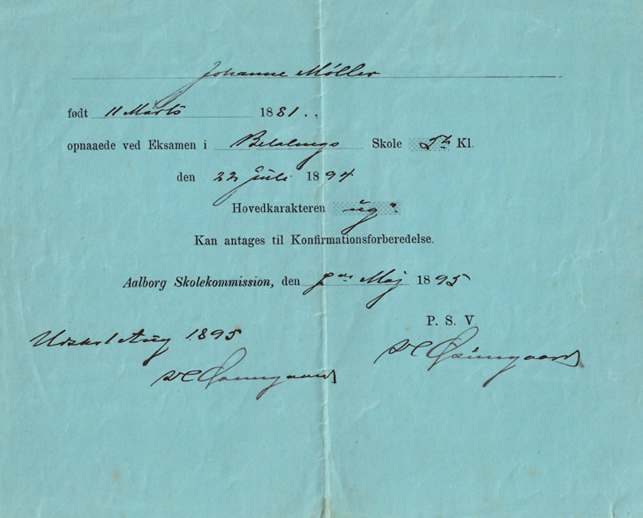 Johanne Møller
født 11 Marts 1881.
opnaaede ved Eksamen i Betalings Skole Kl.
den 22 Juli 1894
Hovedkarakteren ug.
Kan antages til Konfirmationsforberedelse.
Aalborg Skolekommission, den Maj 1895
P. S. V.
Udskr. 1 Aug 1895